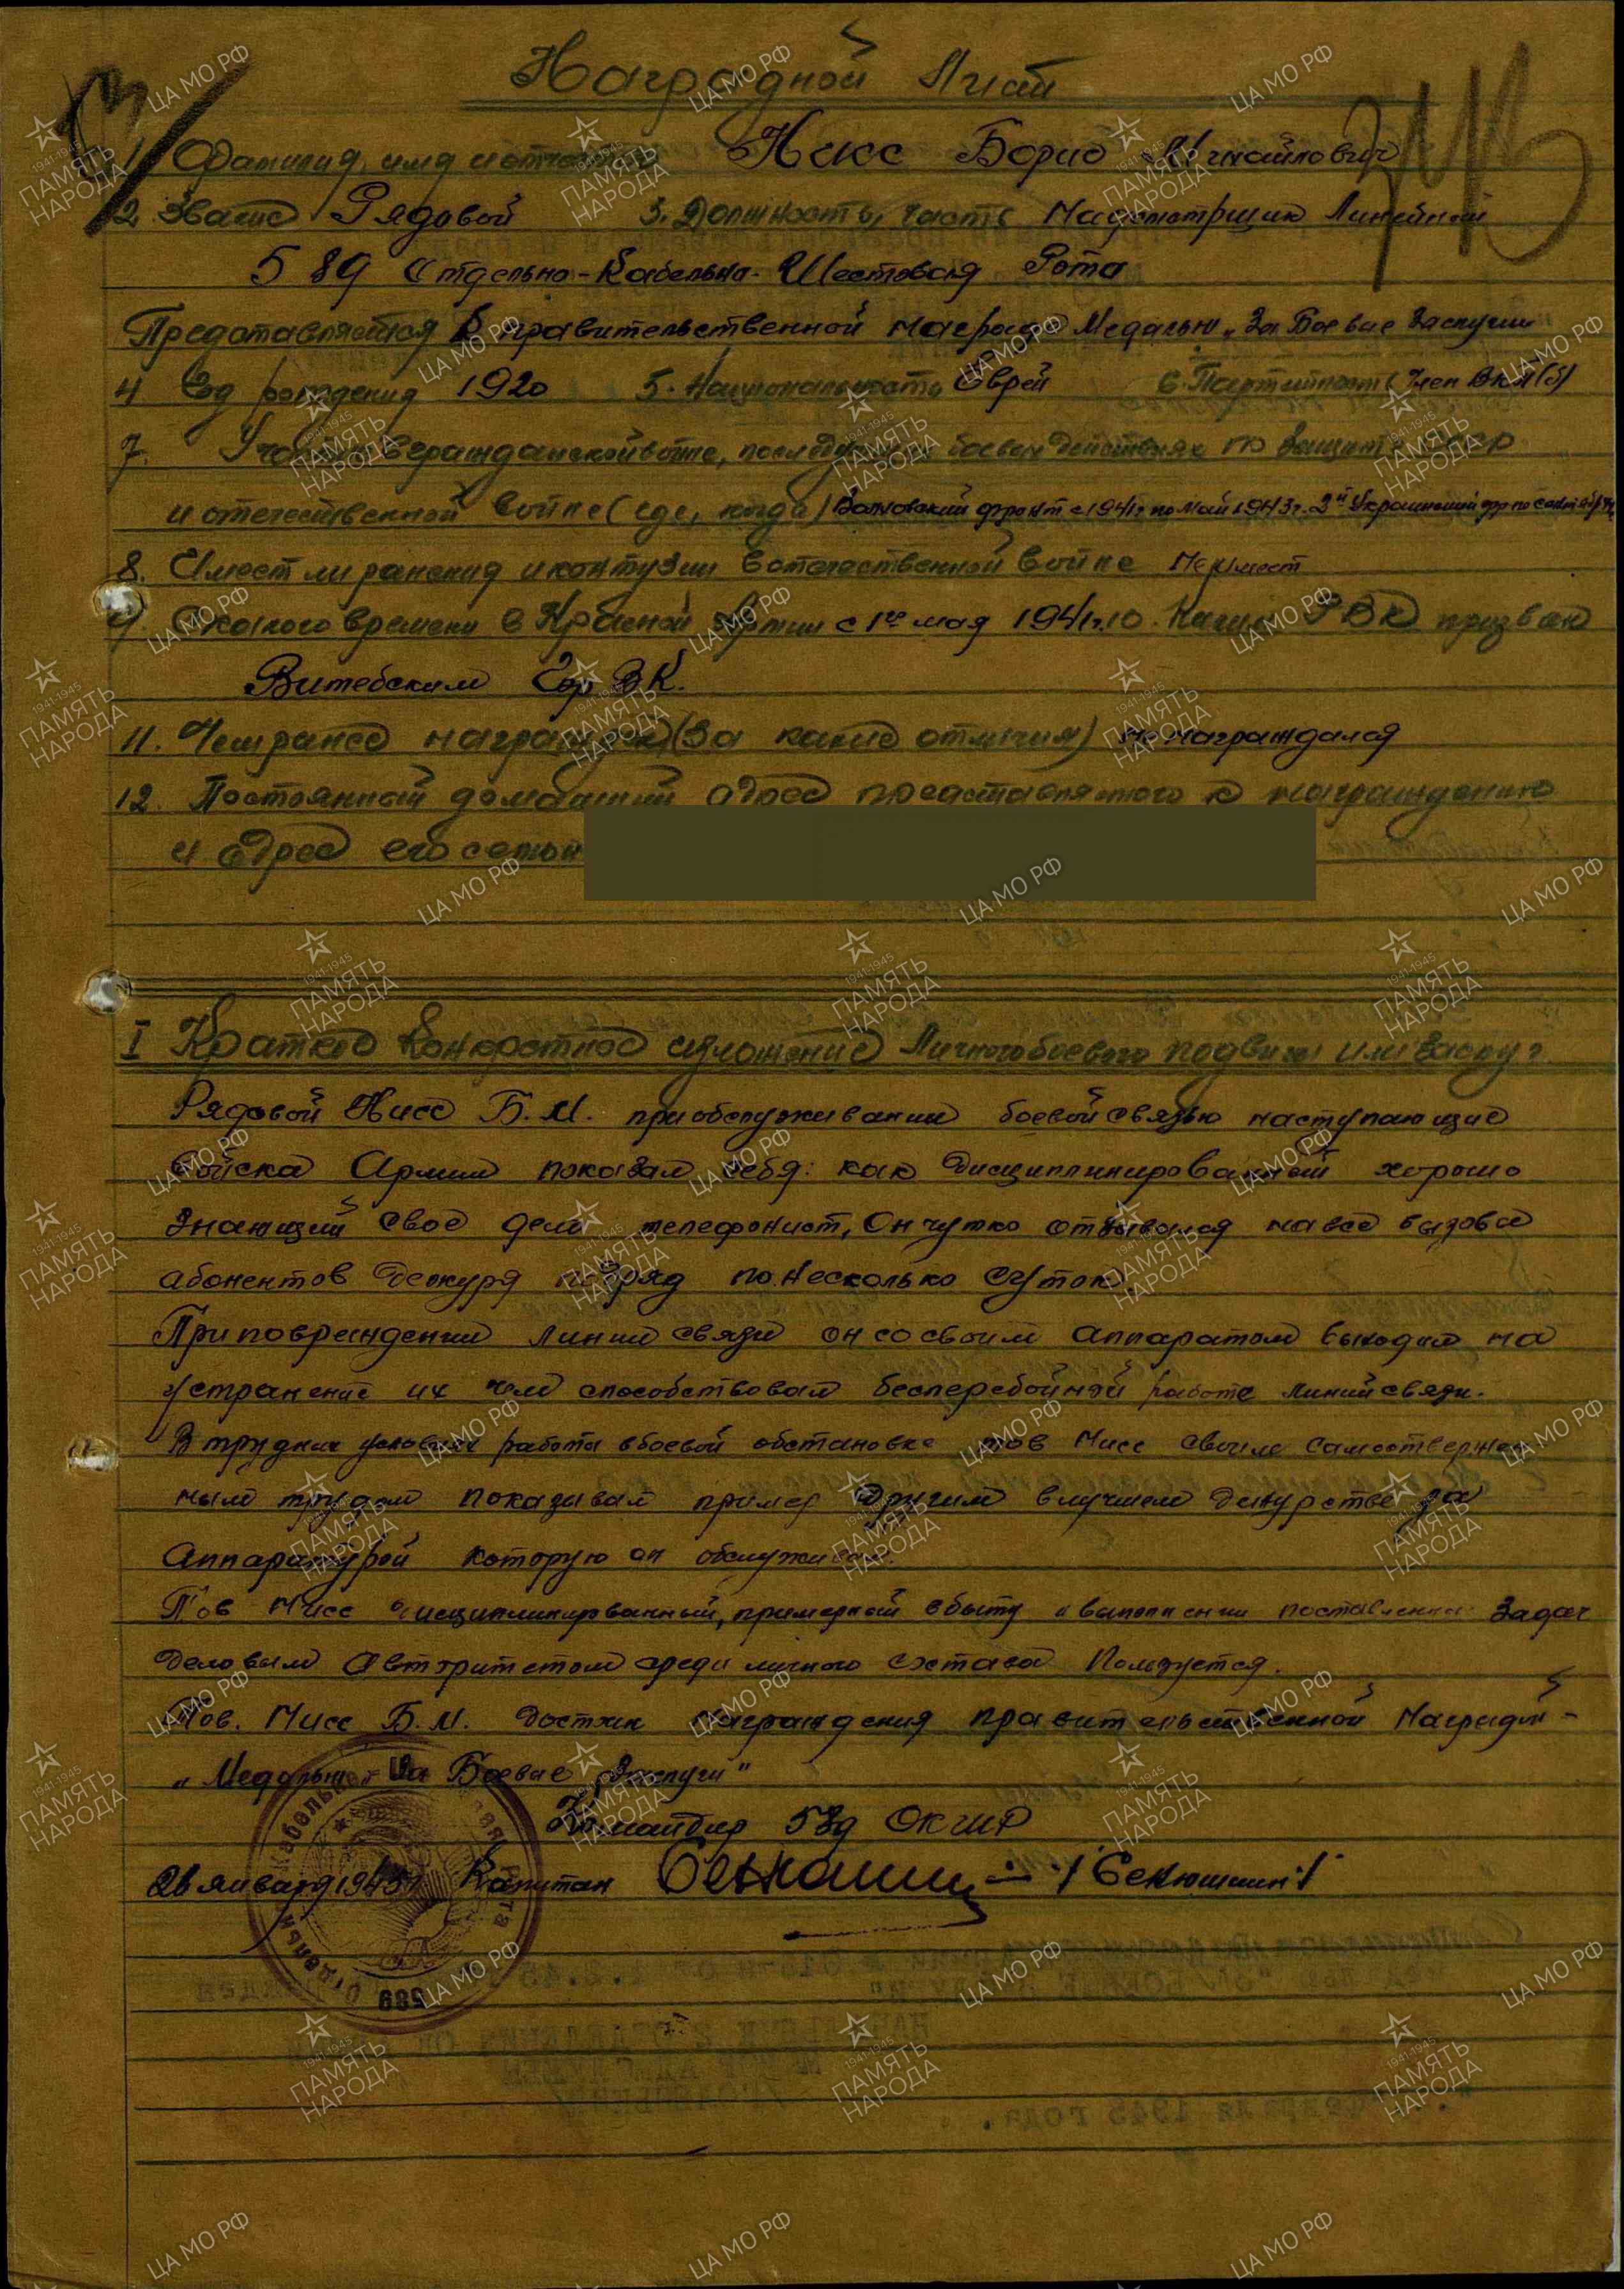 Наградной Лист
1. Фамилия, имя и отчество Нисс Борис Михайлович
2. Звание Рядовой 3. Должность, часть Надсмотрщик Линейный
589 Отдельно-Кабельно-Шестовая Рота
Представляется К правительственной награде Медалью "За Боевые Заслуги
4 Год рождения 1920 5. Национальность Еврей 6. Партийность Член ВКП(б)
7. Участие в гражданской войне, последующих боевых действиях по защите СССР
и отечественной войне (где, когда) Волховский фронт с 1941г по май 1943г. 2й Украинский фр по
8. Имеет ли ранения и контузии в отечественной войне Не имеет
9. С какого времени в Красной Армии с 1го мая 1941г. 10. Каким РВК призван
Витебским Гор ВК.
11. Чем ранее награжден (за какие отличия) не награждался
12. Постоянный домашний адрес представляемого к награждению
и адрес его семьи
I Краткое Конкретное изложение Личного боевого подвига или заслуг
Рядовой Нисс Б.М. при обслуживании боевой связью наступающие
войска Армии показал себя: как дисциплинированный хорошо
знающий свое дело телефонист, Он чутко отзывался на все вызова
абонентов Дежуря подряд по несколько суток.
При повреждении линии связи он со своим аппаратом выходил на
устранение их чем способствовал бесперебойной работе линий связи.
В трудных условиях работы в боевой обстановке тов Нисс своим самоотвержен
ным трудом показывал пример другим в лучшем дежурстве за
Аппаратурой которую он обслуживал.
Тов Нисс дисциплинированный, примерный в быту и выполнении поставленных Задач
Деловым авторитетом среди личного состава Пользуется.
Тов. Нисс Б.М. достоин награждения правительственной Наградой -
"Медалью" За Боевые Заслуги"
Командир 589 ОКШР
26 января 1945г Капитан /Секюшин/
589